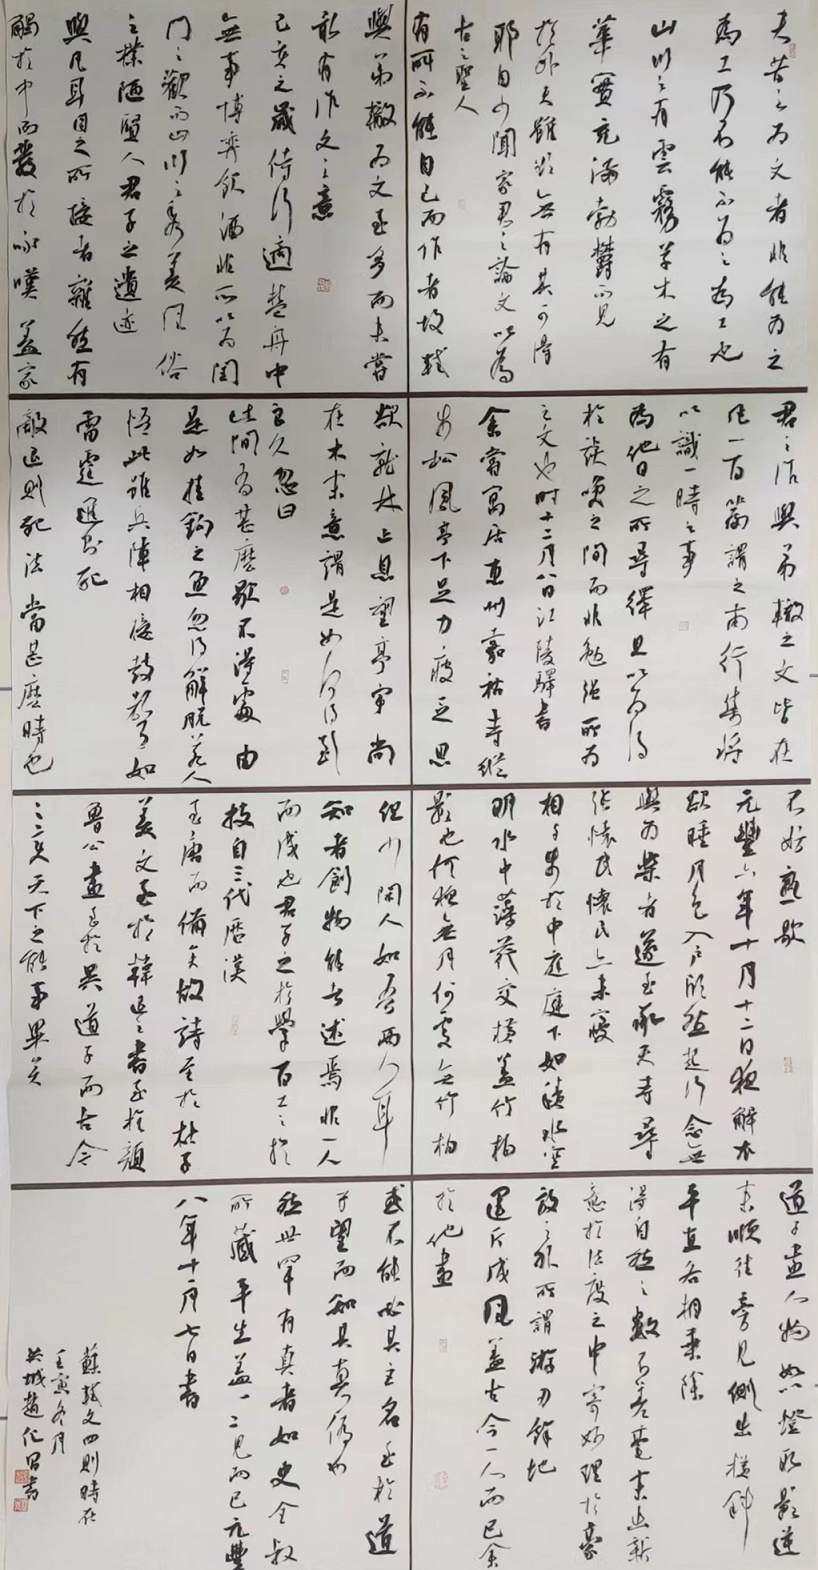 夫昔之为文者非能为之
为工乃不能不为之为工也
山川之有雲霧草木之有
華實充滿勃鬱而見
於外夫雖欲無有其可得
耶自少聞家君之論文以為
古之聖人
有所不能自已而作者故軾
與弟轍為文至多而未嘗
敢有作文之意
己亥之歲侍行適楚舟中
無事博弈飲酒非所以為閨
門之歡而山川之秀美風俗
之樸陋賢人君子之遺迹
與凡耳目之所接者雜然有
觸於中而發於咏嘆蓋家
君之作與弟轍之文皆在
凡一百篇謂之南行集將
以識一時之事
為他日之所尋繹且以為得
於談笑之間而非勉強所為
之文也時十二月八日江陵驛書
余嘗寓居惠州嘉祐寺縱
步松風亭下足力疲乏思
欲就林止息望亭宇尚
在木末意謂是如何得到
良久忽曰
此間有甚麼歇不得處由
是如掛鈎之魚忽得解脫若人
悟此雖兵陣相接鼓聲如
雷霆進則死
敵退則死法當甚麼時也
不妨熟歇
元豐六年十月十二日夜解衣
欲睡月色入戶欣然起行念無
與為樂者遂至承天寺尋
張懷民懷民亦未寢
相與步於中庭庭下如積水空
明水中藻荇交橫蓋竹柏
影也何夜無月何處無竹柏
但少閑人如吾兩人耳
知者創物能者述焉非一人
而成也君子之於學百工之於
技自三代歷漢
至唐而備矣故詩至於杜子
美文至於韓退之書至於顏
魯公畫至於吳道子而古今
之變天下之能事畢矣
道子畫人物如以燈取影逆
來順往旁見側出橫斜
平直各相乘除
得自然之數不差毫末出新
意於法度之中寄妙理於豪
放之外所謂游刃餘地
運斤成風蓋古今一人而已余
於他畫
或不能必其主名至於道
子望而知其真偽也
然世罕有真者如史全叔
所藏平生蓋一二見而已元豐
八年十一月七日書
蘇軾文四則時在
壬寅冬月